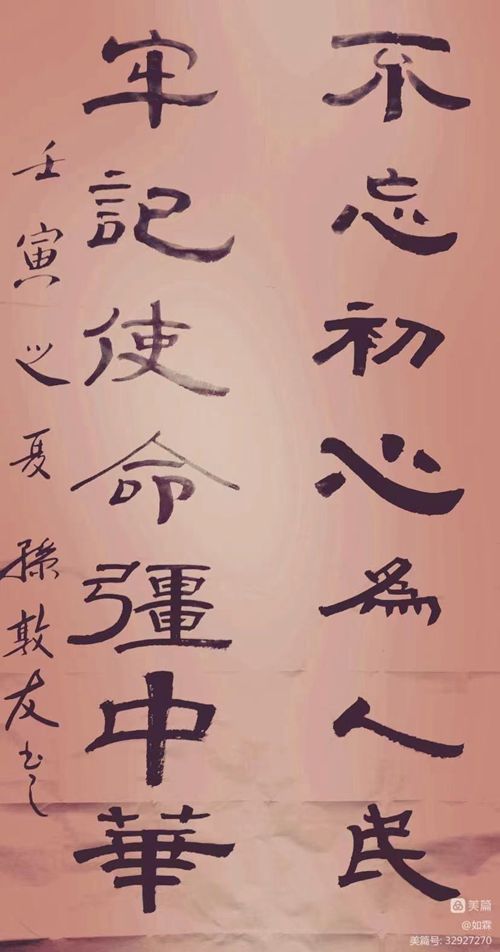 不忘初心為人民
牢記使命彊中華
壬寅之夏 孫敦友书
美篇
@如霖
美篇号: 32927270